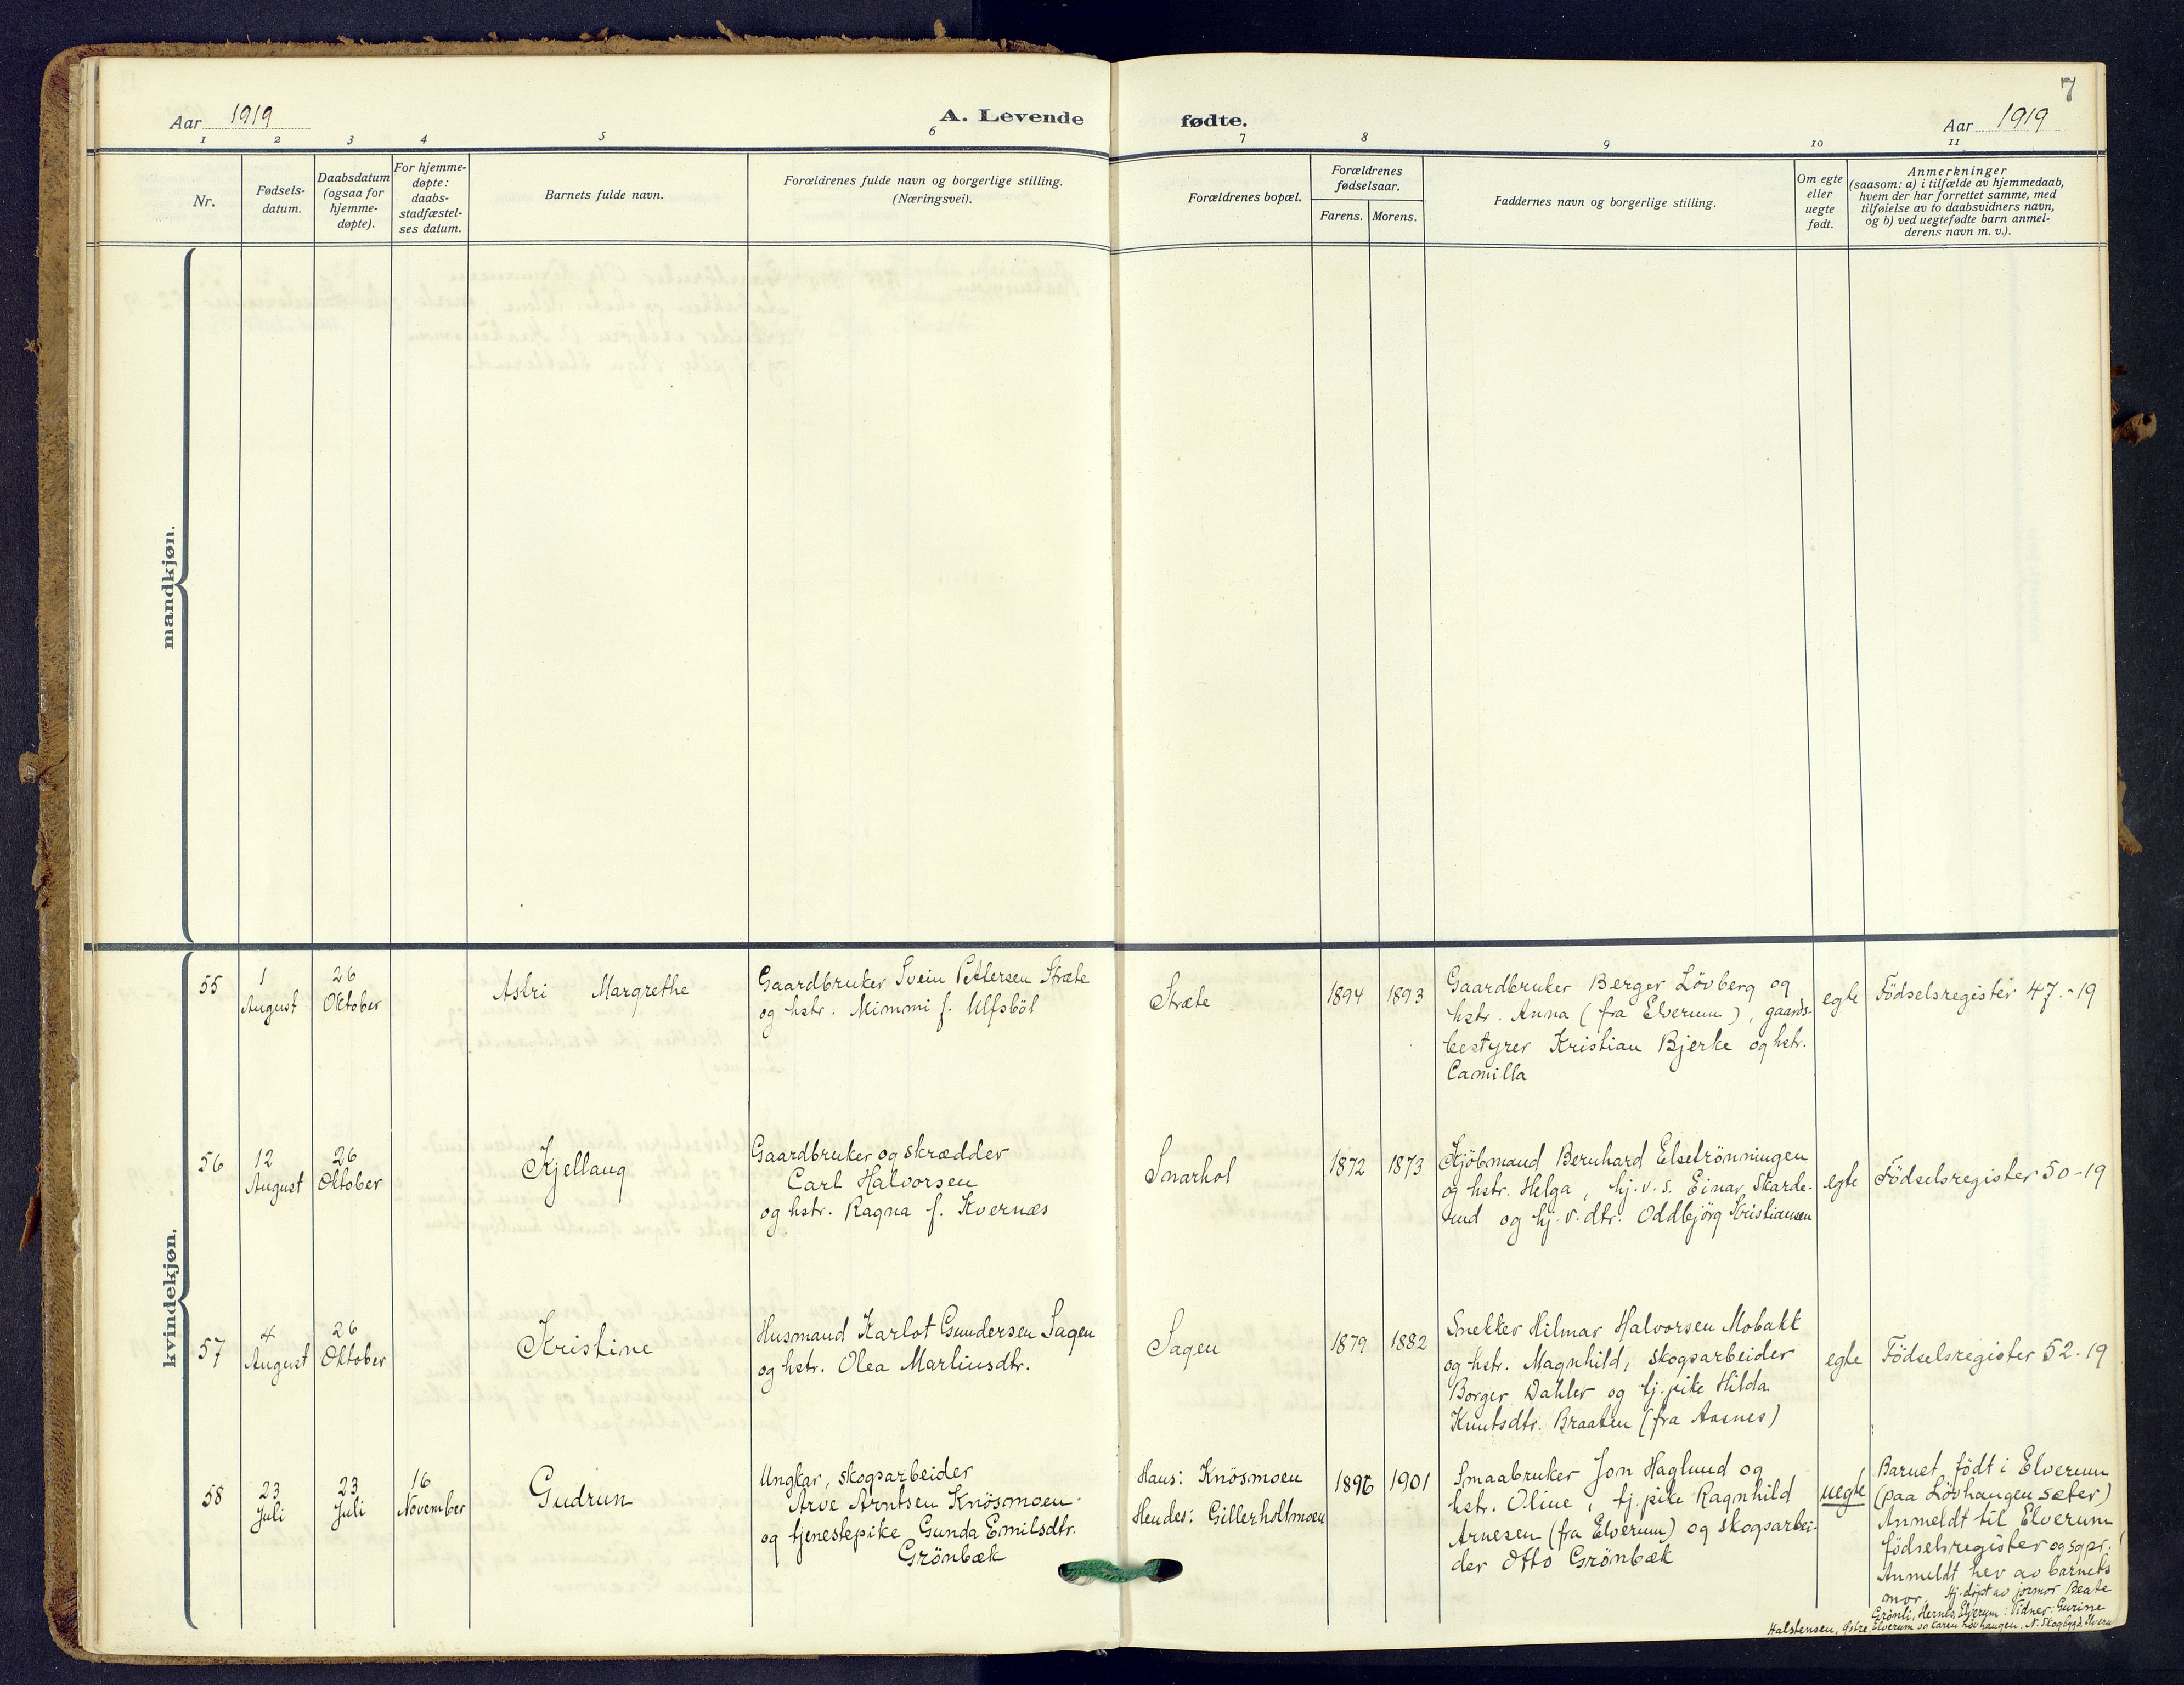 7
Aar 1919
A. Levende fødte.
Aar 1919
1 2 3 4 5 6 7 8 9 10 11
Nr.
Fødsels-
datum.
Daabsdatum
(ogsaa for
hjemme-
døpte).
For hjemme-
døpte:
daabs-
stadfæstel-
ses datum.
Barnets fulde navn.
Forældrenes fulde navn og borgerlige stilling.
(Næringsvei).
Forældrenes bopæl.
Forældrenes
fødselsaar.
Farens. Morens.
Faddernes navn og borgerlige stilling.
Om egte
eller
uegte
født.
Anmerkninger
(saasom: a) i tilfælde av hjemmedaab,
hvem der har forrettet samme, med
tilføielse av to daabsvidners navn,
og b) ved uegtefødte barn anmel-
derens navn m. v.).
mandkjøn.
kvindekjøn.
55
1
August
26
Oktober
Astri Margrethe
Gaardbruker Svein Pettersen Stræte
og hstr. Mimmi f. Ulfsböl
Stræte
1894
1893
Gaardbruker Berger Lövberg og
hstr. Anna (fra Elverum), gaards-
bestyrer Kristian Bjerke og hstr.
Camilla
egte
Födselsregister 47.-19
56
12
August
26
Oktober
Kjellaug
Gaardbruker og skrædder
Carl Halvorsen
og hstr. Ragna f. Kvernæs
Snarhol
1872
1873
Kjöbmand Bernhard Elsetrönningen
og hstr. Helga, hj.v.s. Einar Skarde-
rud og hj.v.dtr. Oddbjörg Kristiansen
egte
Födselsregister 50-19
57
4
August
26
Oktober
Kristine
Husmand Karlot Gundersen Sagen
og hstr. Olea Martinsdtr.
Sagen
1879
1882
Snekker Hilmar Halvorsen Mobakk
og hstr. Magnhild, skogsarbeider
Borger Dahler og tj.pike Hilda
Knutsdtr. Braaten (fra Aasnes)
egte
Födselsregister 52-19
58
23
Juli
23
Juli
16
November
Gudrun
Ungkar, skogsarbeider
Arve Arntsen Knösmoen
og tjenestepike Gunda Emilsdtr.
Grönbæk
Hans: Knösmoen
Hendes: Gillerholtmoen
1896
1901
Smaabruker Jon Haglund og
hstr. Oline, tj.pike Ragnhild
Arnesen (fra Elverum) og skogsarbei-
der Otto Grönbæk
uegte
Barnet födt i Elverum
(paa Lövhaugen sæter)
Anmeldt til Elverum
födselsregister og sgpr.
Anmeldt her av barnets
mor. Hj.döpt av jormor Beate
Grönli, Hernes, Elverum: Vidner: Gurine
Halstensen, Østre Elverum og Karen Lövhaugen. N. Skogbygd, Elverum